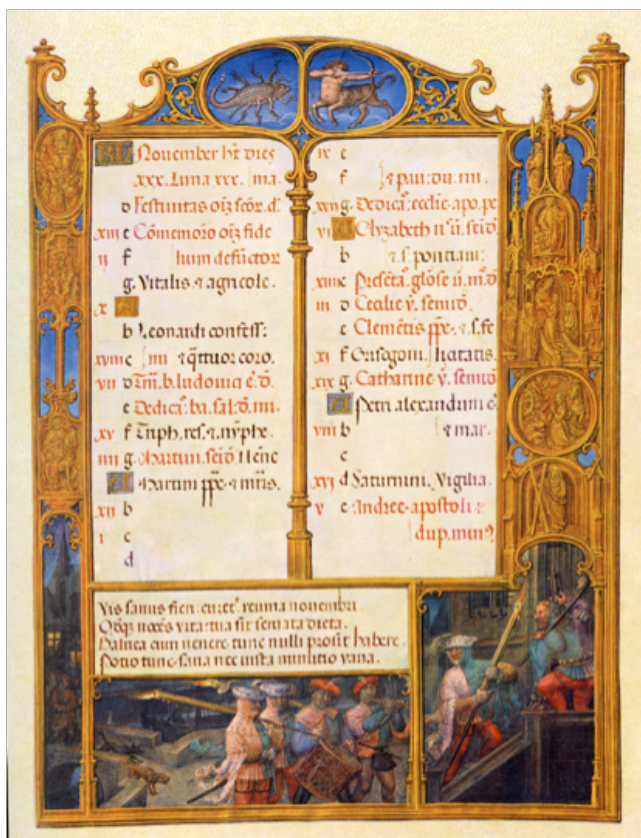 KL November ht dies
xxx. Luna xxx. ma.
D Festivitas oiz scor. d.
xiii e Comemoro oiz fide
ii f lium defuctor
g. Vitalis & agricole.
x A
b Leonardi confess:
xviii c iiii & qttuor coro.
vii D Trn. b. ludovici e. d.
e Dedica. ba. sal. d. mi.
xv f Triph. res. & nyphe.
iiii g. Martini. seid
A Martini ppe. & mris.
xii b
i c
d
ix e
f & pau. du. mi.
xvii g. Dedica. ecclie. apo. pe
vi A Elyzabeth
b & s. ponciani
xiiii c Preseta. glose
iii D Cecilie v. semid.
e Clemetis ppe. & s. fe
xi f Grisogoni
xix g. Catharine v. semid
A Petri alexandrini e
viii b & mar.
c
xvi d Saturnini. Vigilia.
v e Andree. apostoli:
dup. min9
Vis sanus fieri. curet. reuma novembri.
vita. tua sit servata dieta.
Balnea cum venere tunc nulli prosut habere.
Potio tunc. sana nec iusta minutio vana.